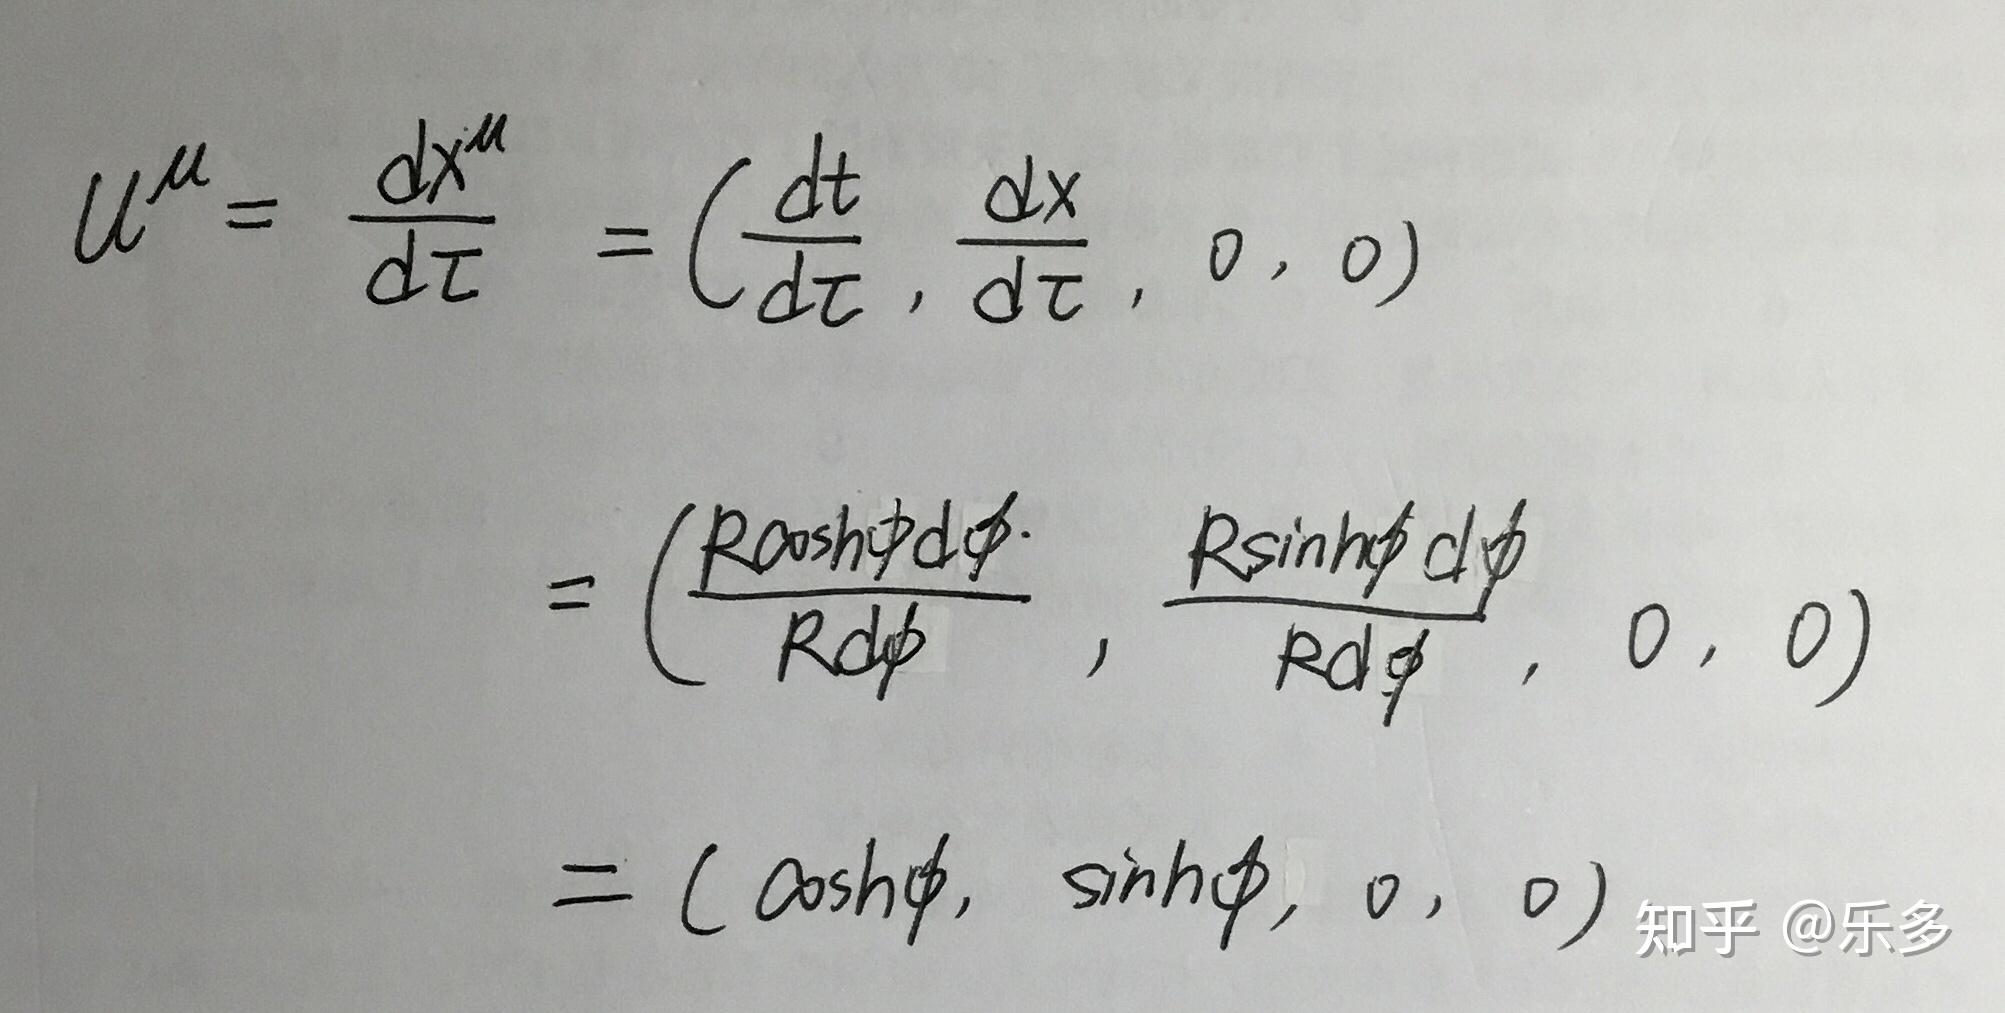 U^μ = dx^μ/dτ = (dt/dτ, dx/dτ, 0, 0)
= (Rcoshϕdϕ/Rdϕ, Rsinhϕdϕ/Rdϕ, 0, 0)
= (coshϕ, sinhϕ, 0, 0)
知乎 @乐多